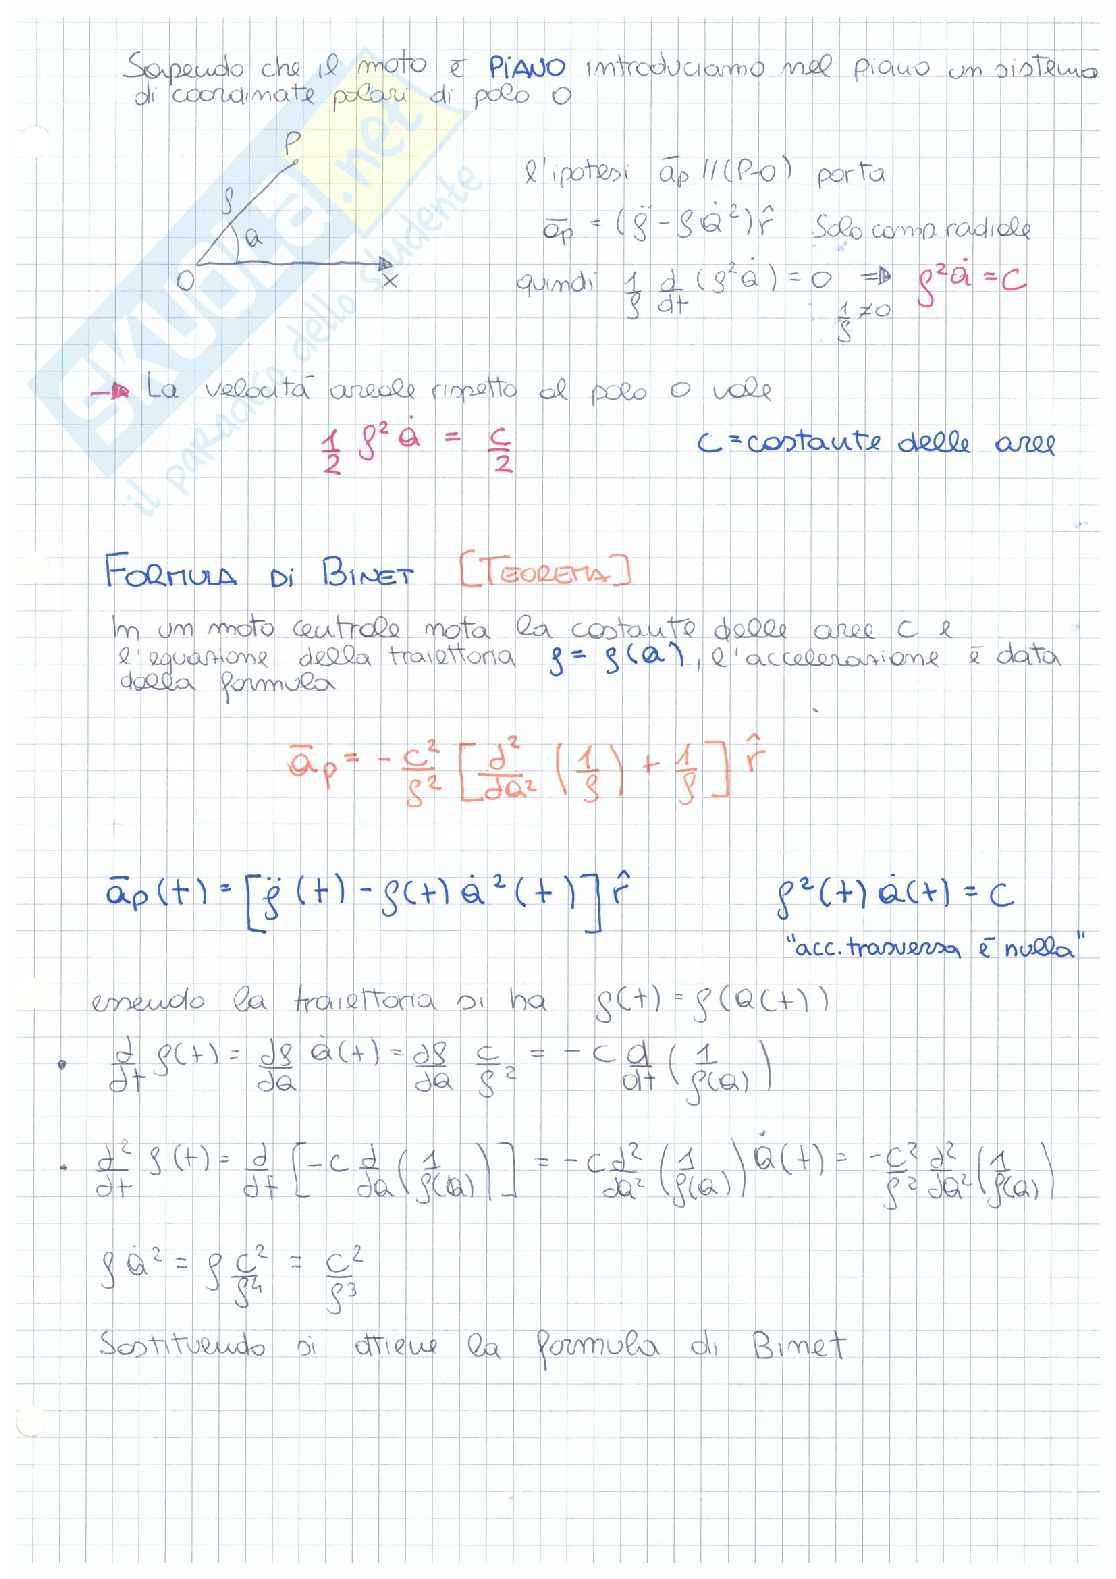 Sapendo che il moto è PIANO introduciamo nel piano un sistema
di coordinate polari di polo O
P
ρ
a
O
x
l'ipotesi āp // (P-O) porta
āp = (ρ̈ - ρȧ²) r̂ Solo comp radiale
quindi 1/ρ d/dt (ρ²ȧ) = 0 ⇒ ρ²ȧ = C
1/ρ ≠ 0
→ La velocità areale rispetto al polo O vale
1/2 ρ² ȧ = c/2 C = costante delle aree
FORMULA Di BINET [TEOREMA]
In un moto centrale nota la costante delle aree C e
l'equazione della traiettoria ρ = ρ(a), l'accelerazione è data
dalla formula
āp = - c²/ρ² [d²/da² (1/ρ) + 1/ρ] r̂
āp(t) = [ρ̈(t) - ρ(t) ȧ²(t)] r̂ ρ²(t) ȧ(t) = C
"acc. trasversa è nulla"
essendo la traiettoria si ha ρ(t) = ρ(a(t))
• d/dt ρ(t) = dρ/da ȧ(t) = dρ/da c/ρ² = - c d/dt (1/ρ(a))
• d²/dt ρ(t) = d/dt [-c d/da (1/ρ(a))] = - c d²/da² (1/ρ(a)) ȧ(t) = - c²/ρ² d²/da² (1/ρ(a))
ρ ȧ² = ρ c²/ρ⁴ = c²/ρ³
Sostituendo si ottiene la formula di Binet
SKUOLA.net
il paradiso dello studente